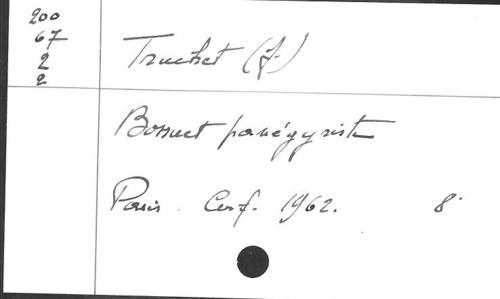 200
67
2
2
Truchet (J.)
Bossuet panégyriste
Paris. Cerf. 1962. 8°